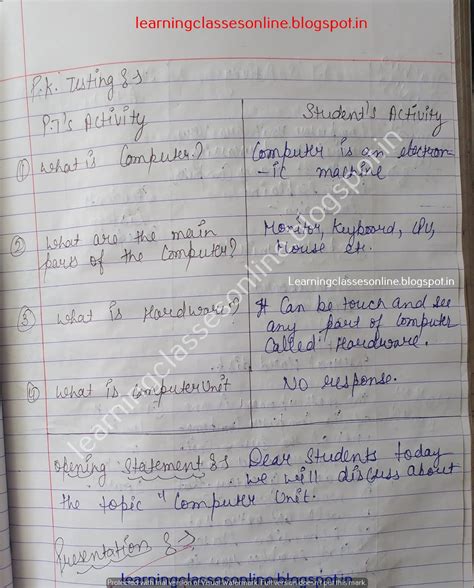 learningclassesonline.blogspot.in
P.K. Testing :-
P.T's Activity Student's Activity
① What is Computer? Computer is an electron-
-ic machine
② What are the main Monitor, Keyboard, CPU,
parts of the Computer? Mouse etc.
Learningclassesonline.blogspot.in
③ What is Hardware? It Can be touch and see
any part of Computer
Called Hardware.
④ What is Computer Unit No response.
learningclassesonline.blogspot.in
Opening Statement :- Dear Students today
we will discuss about
the topic "Computer Unit.
Presentation :-
Protected with trial version of Visual Watermark. Full version doesn't put this mark.
learningclassesonline.blogspot.in